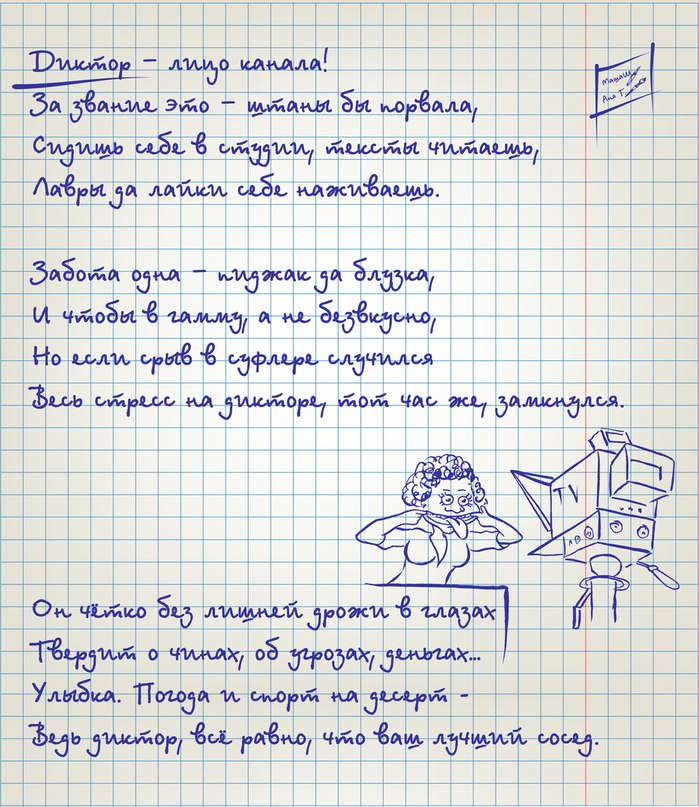 Диктор – лицо канала!
За звание это – штаны бы порвала,
Сидишь себе в студии, тексты читаешь,
Лавры да лайки себе наживаешь.
Забота одна – пиджак да блузка,
И чтобы в гамму, а не безвкусно,
Но если срыв в суфлере случился
Весь стресс на дикторе, тот час же, замкнулся.
TV
Он чётко без лишней дрожи в глазах
Твердит о чинах, об угрозах, деньгах...
Улыбка. Погода и спорт на десерт -
Ведь диктор, всё равно, что ваш лучший сосед.